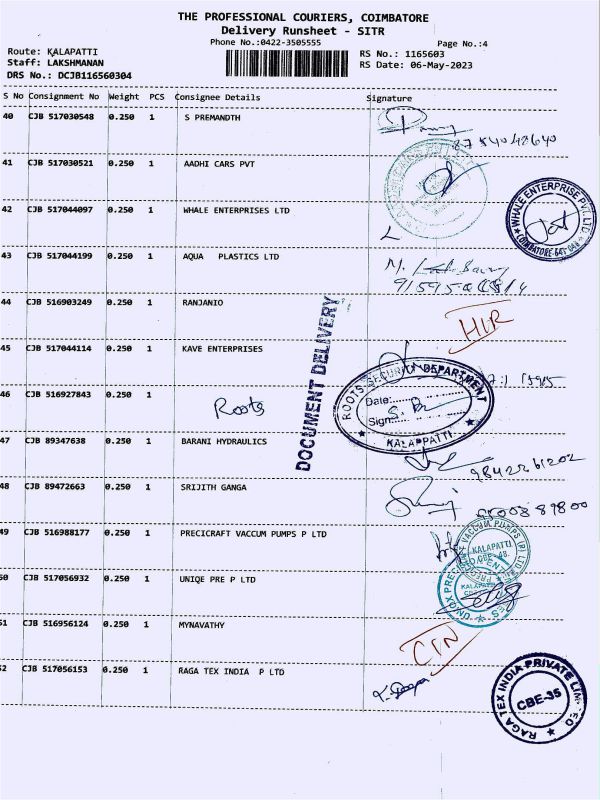 THE PROFESSIONAL COURIERS, COIMBATORE
Delivery Runsheet - SITR
Phone No.:0422-3505555
Page No.:4
Route: KALAPATTI
RS No.: 1165603
Staff: LAKSHMANAN
RS Date: 06-May-2023
DRS No.: DCJB116560304
S No Consignment No Weight PCS Consignee Details Signature
40 CJB 517030548 0.250 1 S PREMANDTH
41 CJB 517030521 0.250 1 AADHI CARS PVT
42 CJB 517044097 0.250 1 WHALE ENTERPRISES LTD
WHALE ENTERPRISE PVT. LTD
COIMBATORE-641 048
43 CJB 517044199 0.250 1 AQUA PLASTICS LTD
44 CJB 516903249 0.250 1 RANJANIO
HLR
DOCUMENT DELIVERY
45 CJB 517044114 0.250 1 KAVE ENTERPRISES
46 CJB 516927843 0.250 1 Roots
ROOTS SECURITY DEPARTMENT
Date:
Sign:
KALAPPATTI
47 CJB 89347638 0.250 1 BARANI HYDRAULICS
9842261202
48 CJB 89472663 0.250 1 SRIJITH GANGA
9500389800
49 CJB 516988177 0.250 1 PRECICRAFT VACCUM PUMPS P LTD
KALAPATTI
50 CJB 517056932 0.250 1 UNIQE PRE P LTD
51 CJB 516956124 0.250 1 MYNAVATHY
CTN
52 CJB 517056153 0.250 1 RAGA TEX INDIA P LTD
RAGA TEX INDIA PRIVATE LIMITED
CBE-35